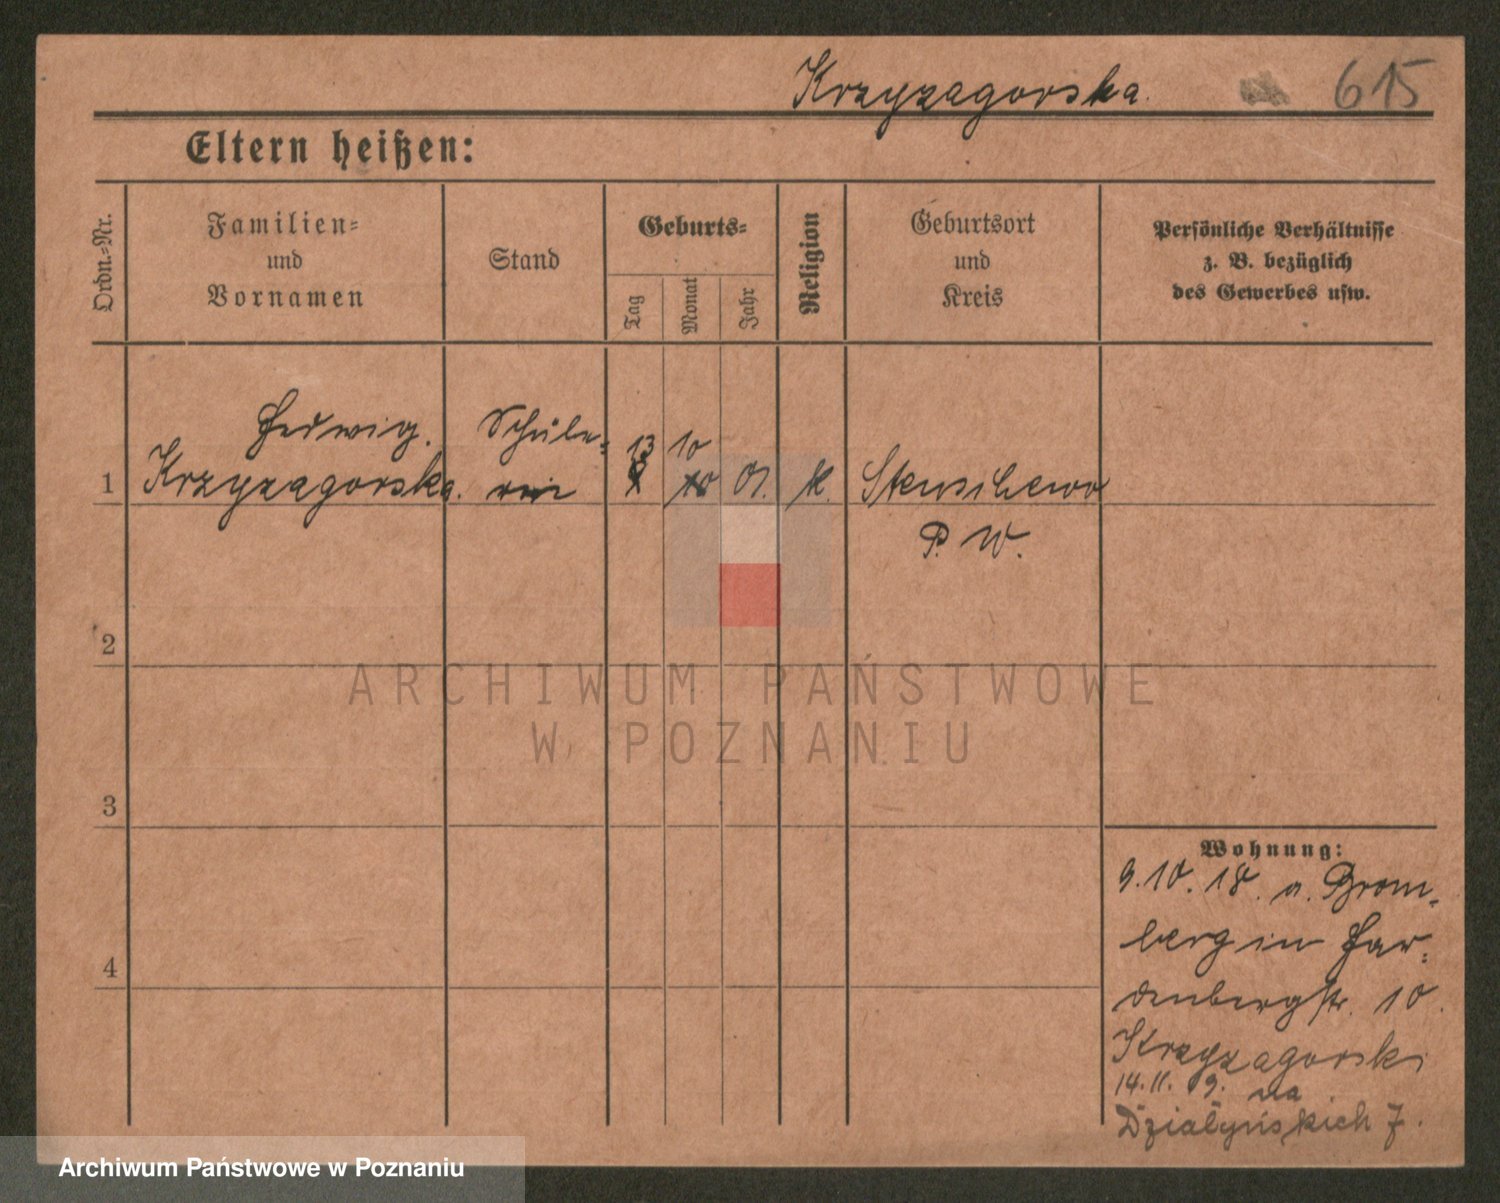 Krzyzagorska.
615
Eltern heißen:
Ordn.-Nr.
Familien-
und
Vornamen
Stand
Geburts-
Tag
Monat
Jahr
Religion
Geburtsort
und
Kreis
Persönliche Verhältnisse
z. B. bezüglich
des Gewerbes usw.
Hedwig.
Schüle-
13 10
1 Krzyzagorska. rin 01. k. Stenschewo
P. W.
2
ARCHIWUM PAŃSTWOWE
W POZNANIU
3
Wohnung:
9.10.18. a. Brom-
berg in Har-
4
denbergstr. 10.
Krzyzagorski
14.11.19. na
Działyńskich 7.
Archiwum Państwowe w Poznaniu